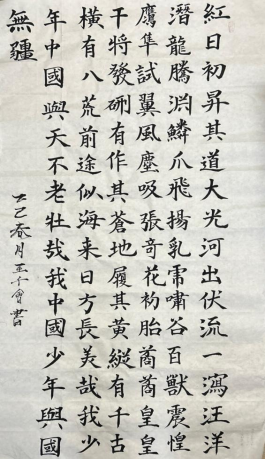 紅日初昇其道大光河出伏流一瀉汪洋
潛龍騰渊鱗爪飛揚乳乕嘯谷百獸震惶
鷹隼試翼風塵吸張奇花初胎矞矞皇皇
干將發硎有作其蒼地履其黄縱有千古
橫有八荒前途似海来日方長美哉我少
年中國與天不老壮哉我中國少年與國
無疆
乙巳春月
書